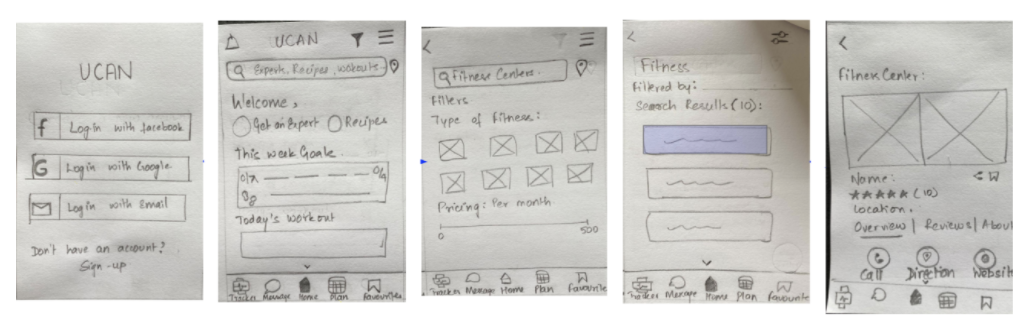 UCAN
f Login with facebook
G Login with Google
Login with Email
Don't have an account?
Sign-up
UCAN
Experts, Recipes, workouts.
Welcome,
Get an Expert
Recipes
This week Goals.
Today's workout
Tracker Message Home Plan Favourites
Fitness Centers.
Filters
Type of Fitness:
Pricing: Per month
0 500
Tracker Message Home Plan Favourite
Fitness
Filtered by:
Search Results (10):
Tracker Message Home Plan Favourite
Fitness Center:
Name:
★★★★★ (10)
Location.
Overview | Reviews | Abou
Call Direction Websit